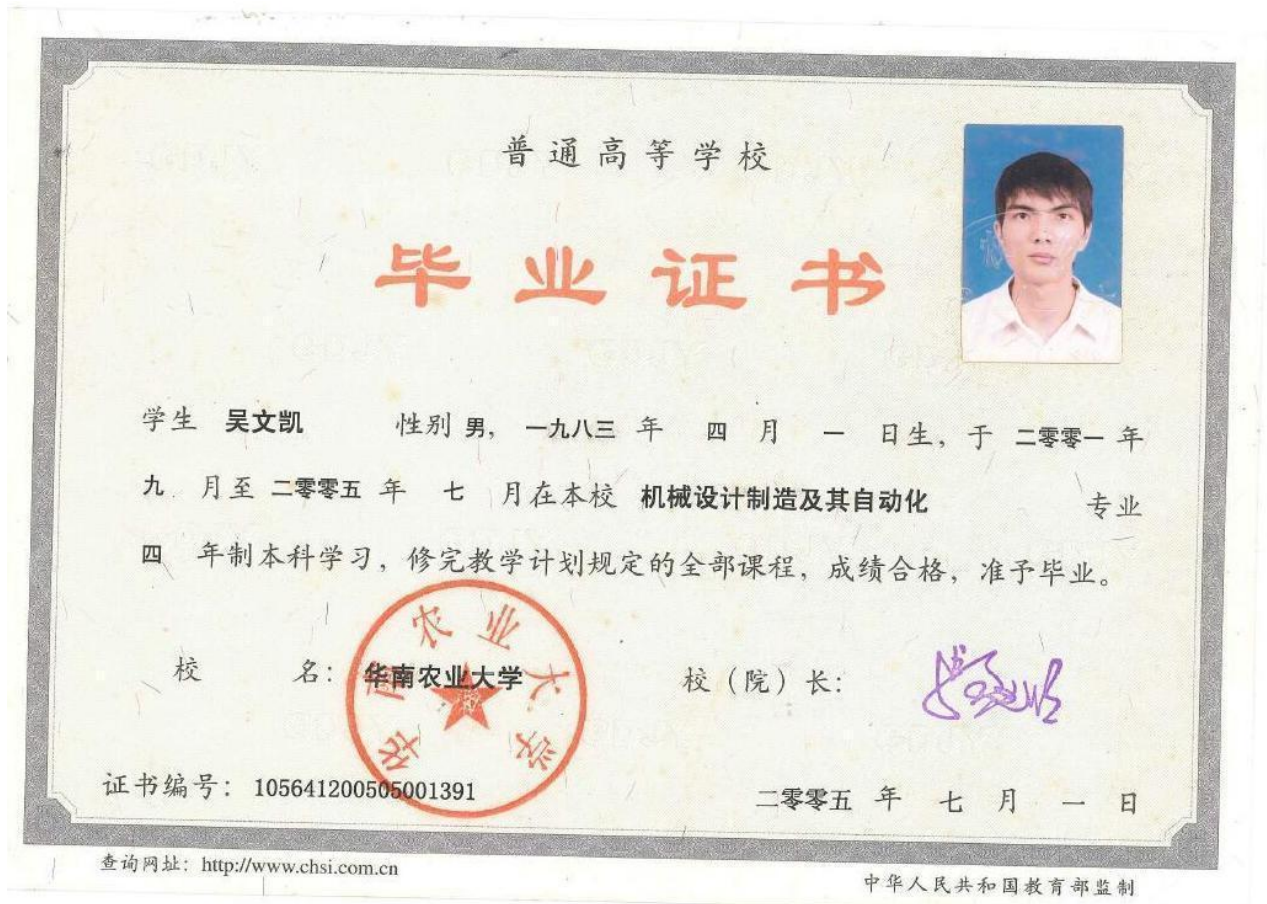 普通高等学校
毕业证书
学生 吴文凯 性别 男, 一九八三 年 四 月 一 日生, 于 二零零一 年
九 月至 二零零五 年 七 月在本校 机械设计制造及其自动化 专业
四 年制本科学习, 修完教学计划规定的全部课程, 成绩合格, 准予毕业。
华南农业大学
校 名: 华南农业大学 校(院)长:
证书编号: 105641200505001391 二零零五 年 七 月 一 日
查询网址: http://www.chsi.com.cn 中华人民共和国教育部监制